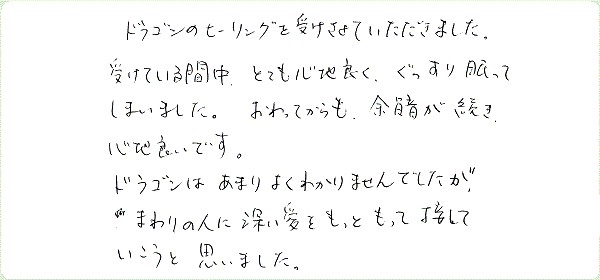 ドラゴンのヒーリングを受けさせていただきました。
受けている間中、とても心地良く、ぐっすり眠って
しまいました。 おわってからも、余韻が続き、
心地良いです。
ドラゴンはあまりよくわかりませんでしたが、
まわりの人に深い愛をもっともって接して
いこうと思いました。